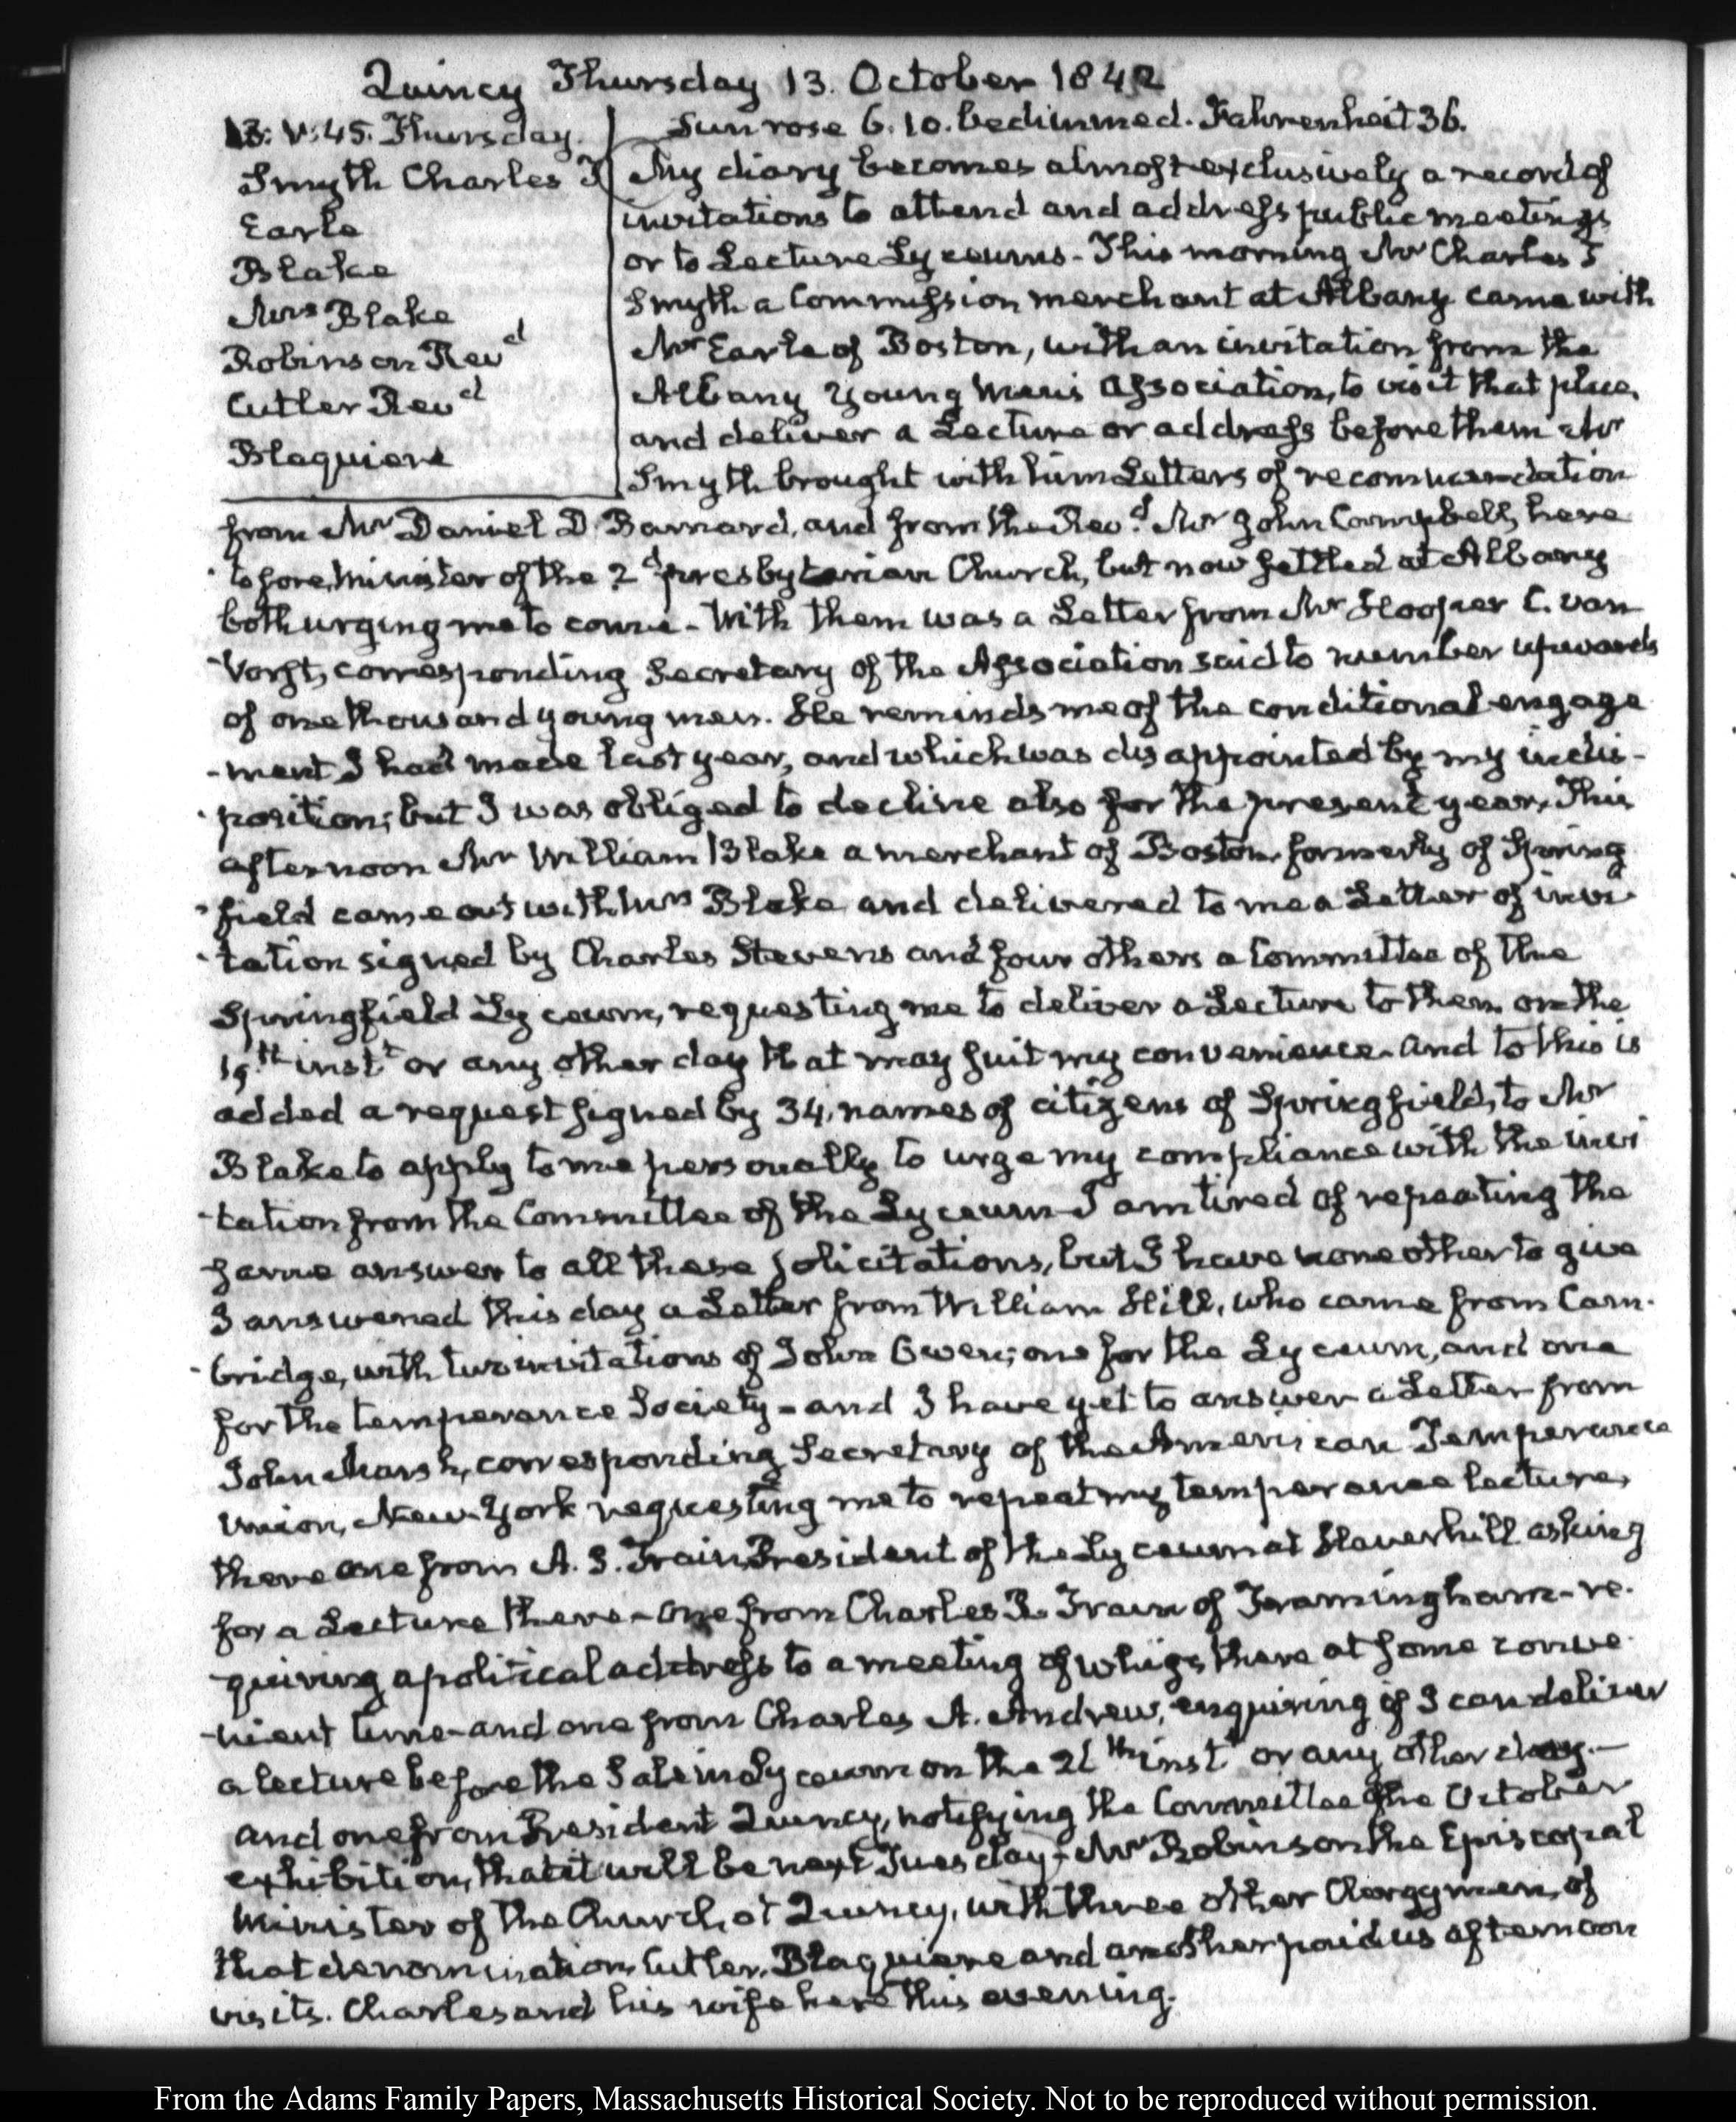 Quincy Thursday 13. October 1842
13. V.45. Thursday.
Smyth Charles T
Earle
Blake
Mrs Blake
Robinson Revd
Cutler Revd
Blaquiere
Sun rose 6.10. bedimmed. Fahrenheit 36.
My diary becomes almost exclusively a record of
invitations to attend and address public meetings
or to Lecture Lyceums - This morning Mr Charles T
Smyth a Commission merchant at Albany came with
Mr Earle of Boston, with an invitation from the
Albany Young Men's Association, to visit that place,
and deliver a Lecture or address before them Mr
Smyth brought with him Letters of recommendation
from Mr Daniel D. Barnard, and from the Revd. Mr John Campbell, here
tofore, Minister of the 2d presbyterian Church, but now settled at Albany
both urging me to come - With them was a Letter from Mr Hooper C. Van
Vorst, corresponding Secretary of the Association said to number upwards
of one thousand young men. He reminds me of the conditional engage
-ment I had made last year, and which was disappointed by my indis-
position; but I was obliged to decline also for the present year. This
afternoon Mr William Blake a merchant of Boston, formerly of Spring
field came out with Mrs Blake and delivered to me a Letter of invi-
-tation signed by Charles Stevens and four others a Committee of the
Springfield Lyceum, requesting me to deliver a Lecture to them on the
19th instt or any other day that may suit my convenience. And to this is
added a request signed by 34. names of citizens of Springfield, to Mr
Blake to apply to me personally to urge my compliance with the invi
-tation from the Committee of the Lyceum I am tired of repeating the
same answer to all these solicitations, but I have none other to give
I answered this day a Letter from William Hill, who came from Cam-
-bridge, with two invitations of John Owen; one for the Lyceum, and one
for the temperance Society - and I have yet to answer a Letter from
John Marsh, corresponding Secretary of the American Temperance
Union, New-York requesting me to repeat my temperance lecture,
there one from A. S. Train President of the Lyceum at Haverhill asking
for a Lecture there - one from Charles R. Train of Framingham - re-
quiring a political address to a meeting of whigs there at some conve
-nient time - and one from Charles A. Andrew, enquiring if I can deliver
a lecture before the Salem Lyceum on the 26th instt or any other day. -
and one from President Quincy, notifying the Committee of the October
exhibition, that it will be next Tuesday - Mr Robinson the Episcopal
Minister of the Church at Quincy, with three other Clergymen, of
that denomination, Cutler, Blaquiere and another paid us afternoon
visits. Charles and his wife here this evening.
From the Adams Family Papers, Massachusetts Historical Society. Not to be reproduced without permission.